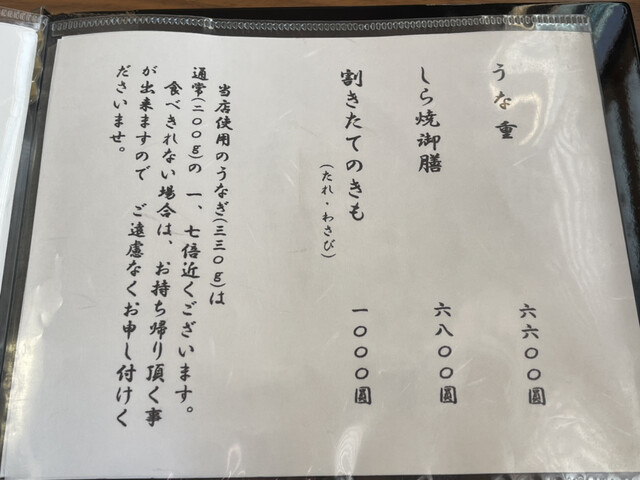 うな重　六六〇〇圓
しら焼御膳　六八〇〇圓
割きたてのきも　一〇〇〇圓
（たれ・わさび）
当店使用のうなぎ（三三〇ｇ）は
通常（二〇〇ｇ）の　一、七倍近くございます。
食べきれない場合は、お持ち帰り頂く事
が出来ますので　ご遠慮なくお申し付けく
ださいませ。